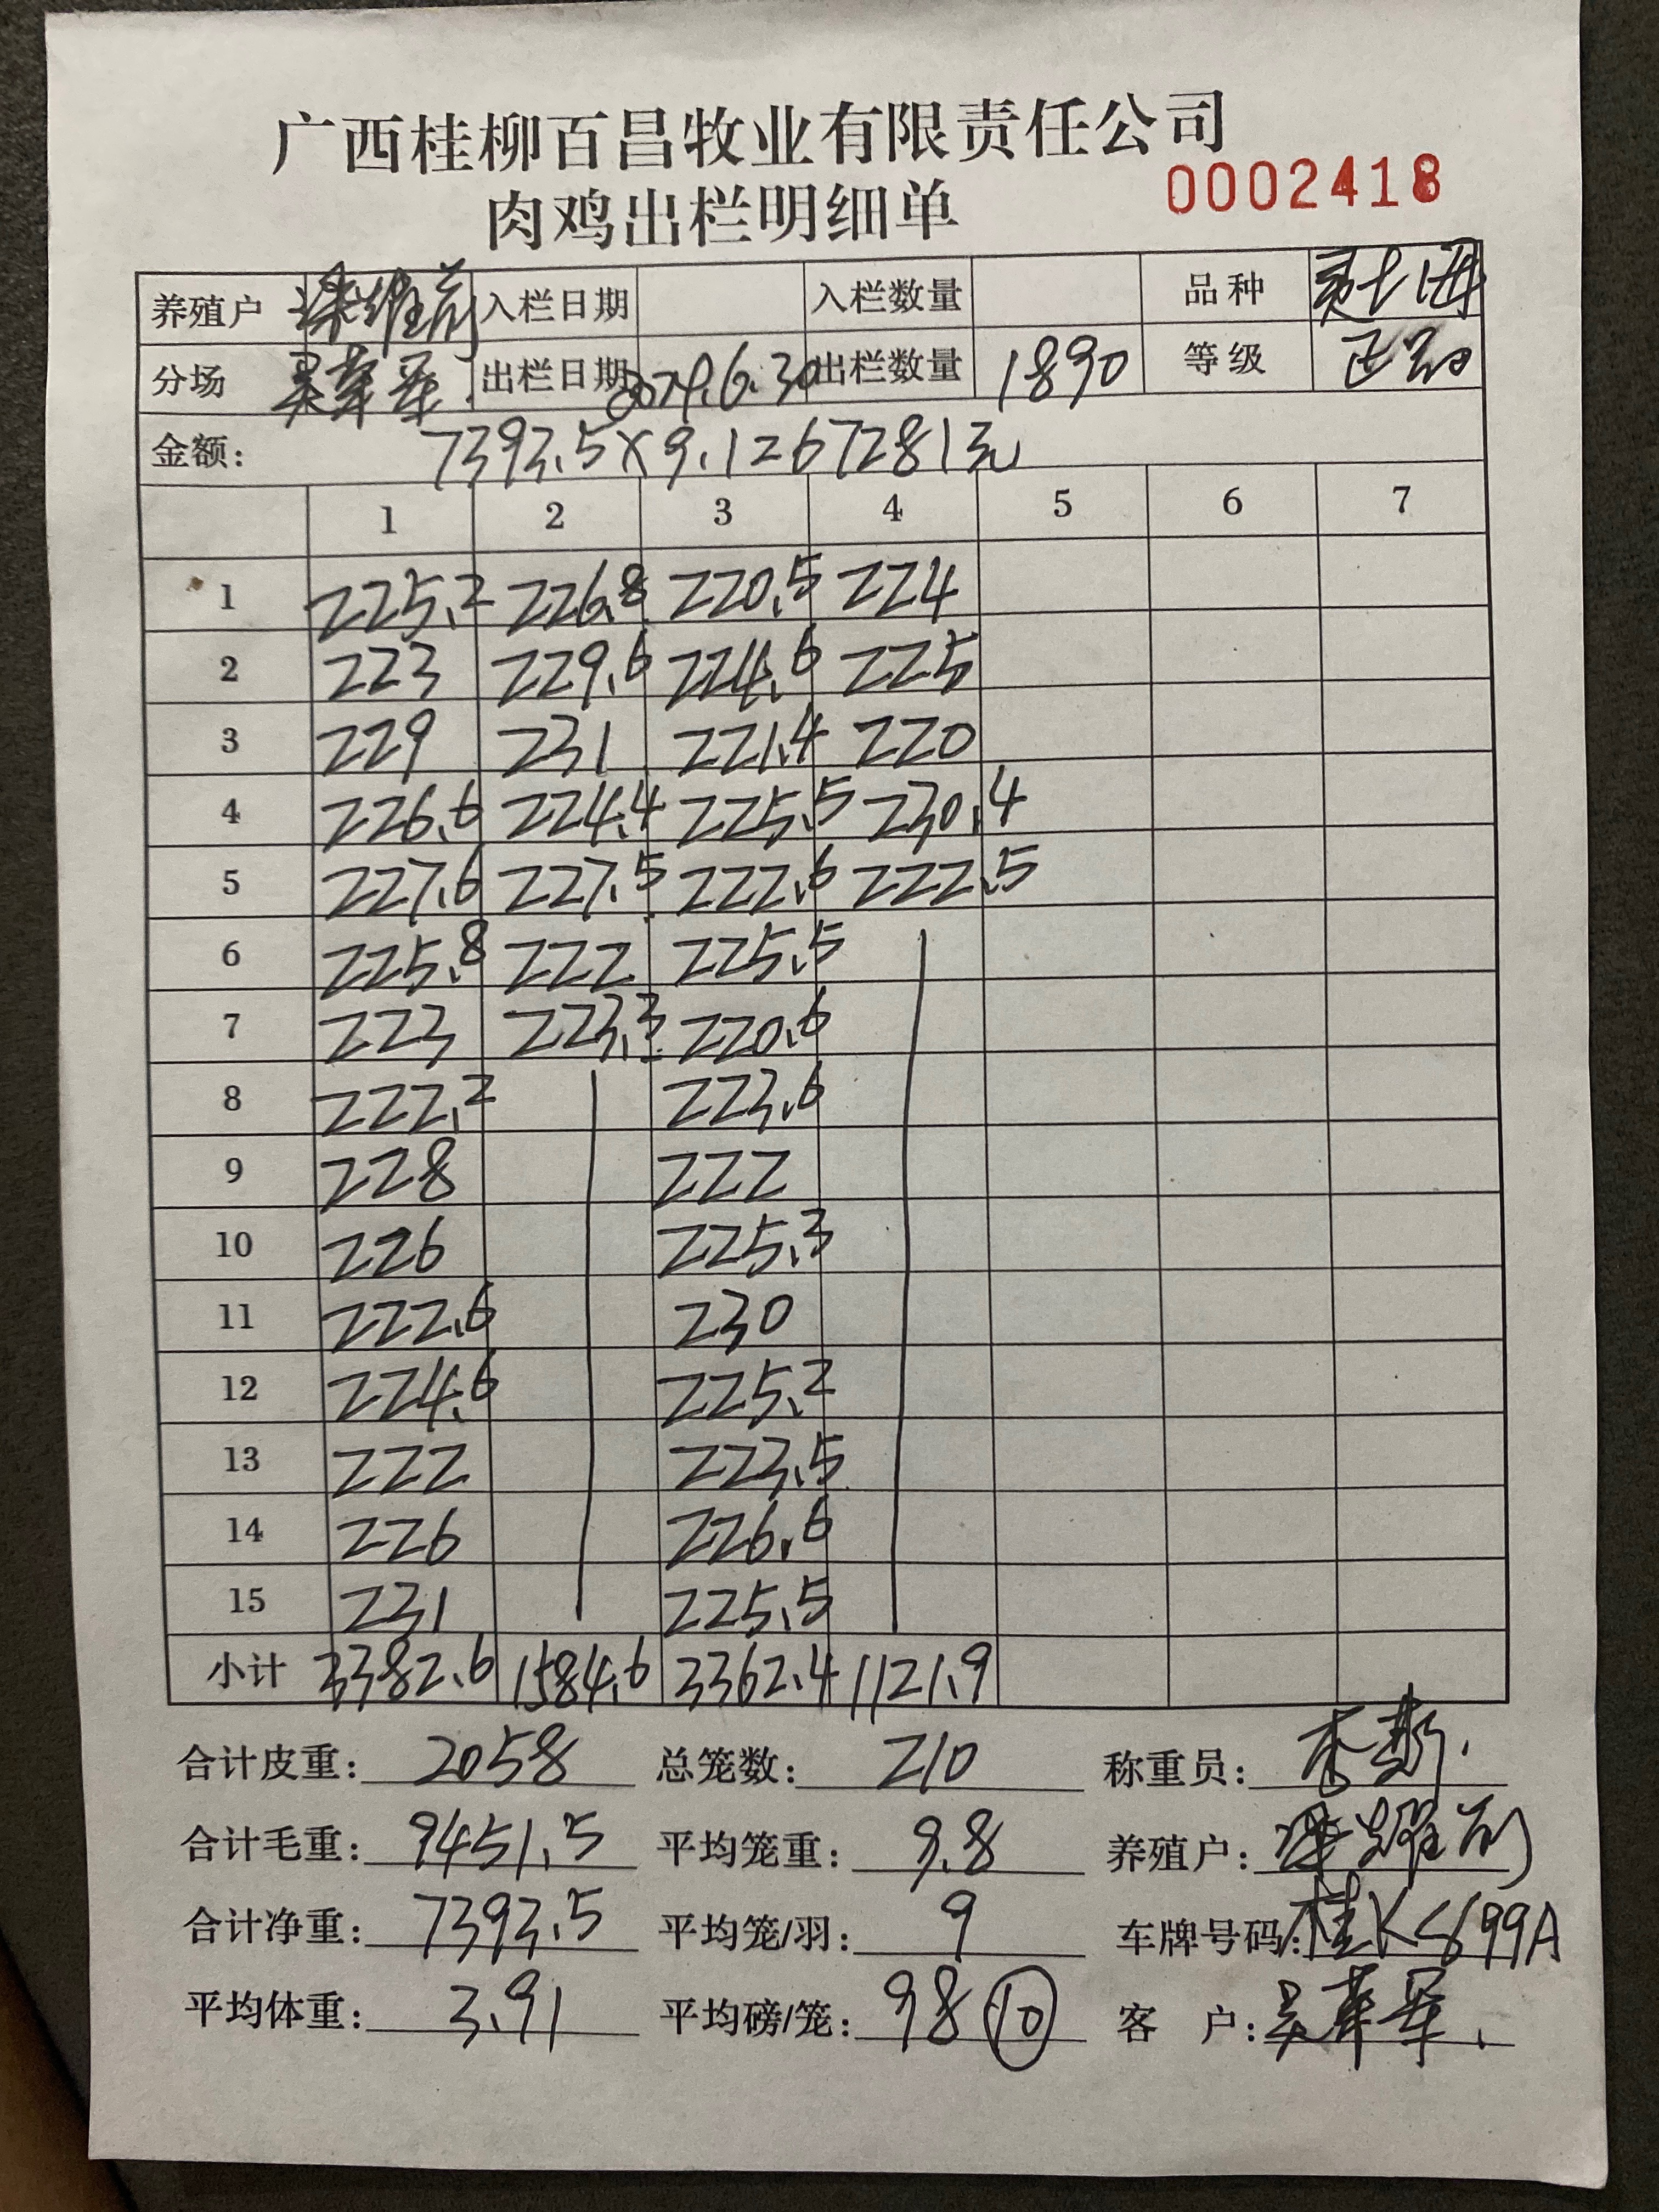 广西桂柳百昌牧业有限责任公司
肉鸡出栏明细单 0002418
养殖户 入栏日期 入栏数量 品种
分场 出栏日期 2024.6.30 出栏数量 1890 等级
金额: 7393.5×9.1 67281元
1 2 3 4 5 6 7
1 225.2 226.8 220.5 224
2 223 229.6 224.6 225
3 229 231 221.4 220
4 226.6 224.4 225.5 230.4
5 227.6 227.5 222.6 222.5
6 225.8 222 225.5
7 223 223.3 220.6
8 222.2 223.6
9 228 222
10 226 225.3
11 222.6 230
12 224.6 225.2
13 222 223.5
14 226 226.6
15 231 225.5
小计 3382.6 1584.6 3362.4 1121.9
合计皮重: 2058 总笼数: 210 称重员:
合计毛重: 9451.5 平均笼重: 9.8 养殖户:
合计净重: 7393.5 平均笼/羽: 9 车牌号码:
平均体重: 3.91 平均磅/笼: 98 10 客 户: